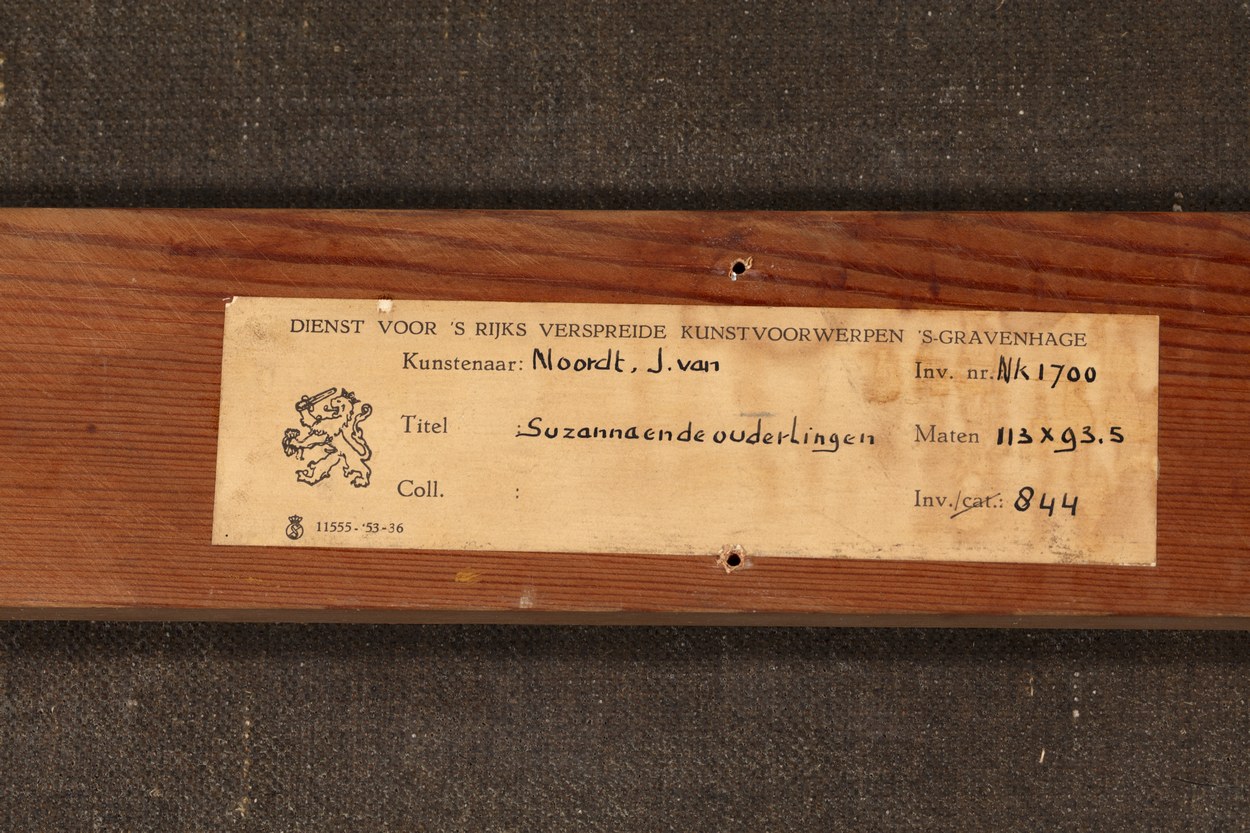 DIENST VOOR 'S RIJKS VERSPREIDE KUNSTVOORWERPEN 'S-GRAVENHAGE
Kunstenaar: Noordt, J. van Inv. nr. Nk 1700
Titel : Suzanna en de ouderlingen Maten 113 x 93.5
Coll. : Inv./cat.: 844
11555-'53-36